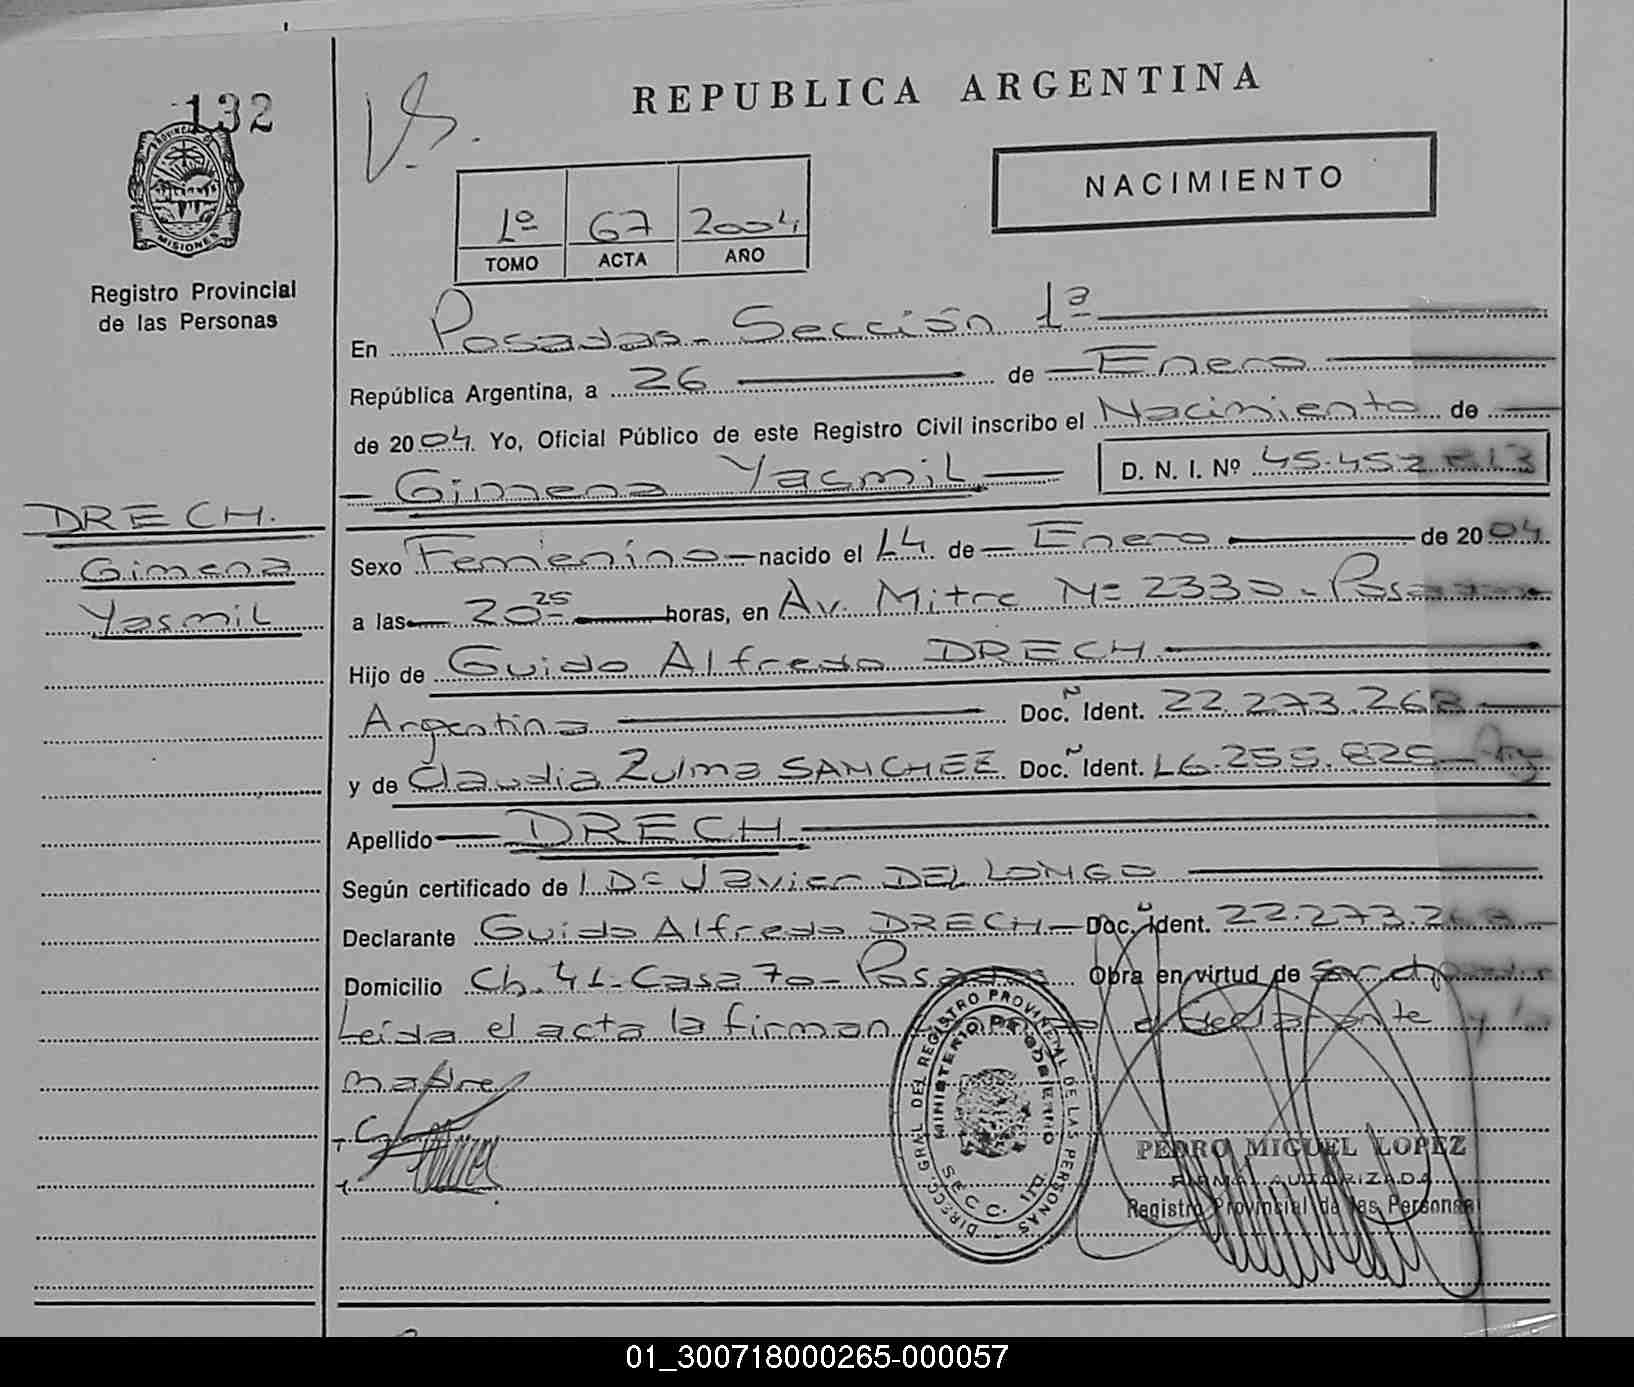 132
PROVINCIA DE
MISIONES
Registro Provincial
de las Personas
REPUBLICA ARGENTINA
NACIMIENTO
1º 67 2004
TOMO ACTA AÑO
En Posadas - Sección 1ª
República Argentina, a 26 de Enero
de 2004. Yo, Oficial Público de este Registro Civil inscribo el Nacimiento de
Gimena Yasmil D. N. I. Nº 45.452.
DRECH.
Gimena
Yasmil
Sexo Femenino nacido el 14 de Enero de 2004.
a las 20 25 horas, en Av. Mitre Nº 2330 - Posadas
Hijo de Guido Alfredo DRECH
Argentina Doc. Ident. 22.273.268
y de Claudia Zulma SANCHEZ Doc. Ident. 16.255.825 - Arg
Apellido DRECH
Según certificado de Dr Javier DEL LONGO
Declarante Guido Alfredo DRECH - Doc. Ident. 22.273.268
Domicilio Ch. 41 - Casa 70 - Posadas Obra en virtud de
Leída el acta la firman el declarante y la
madre
DIRECC. GRAL. DEL REGISTRO PROVINCIAL DE LAS PERSONAS
MINISTERIO DE GOBIERNO
SECC. 1
PEDRO MIGUEL LOPEZ
FIRMA AUTORIZADA
Registro Provincial de las Personas
01_300718000265-000057